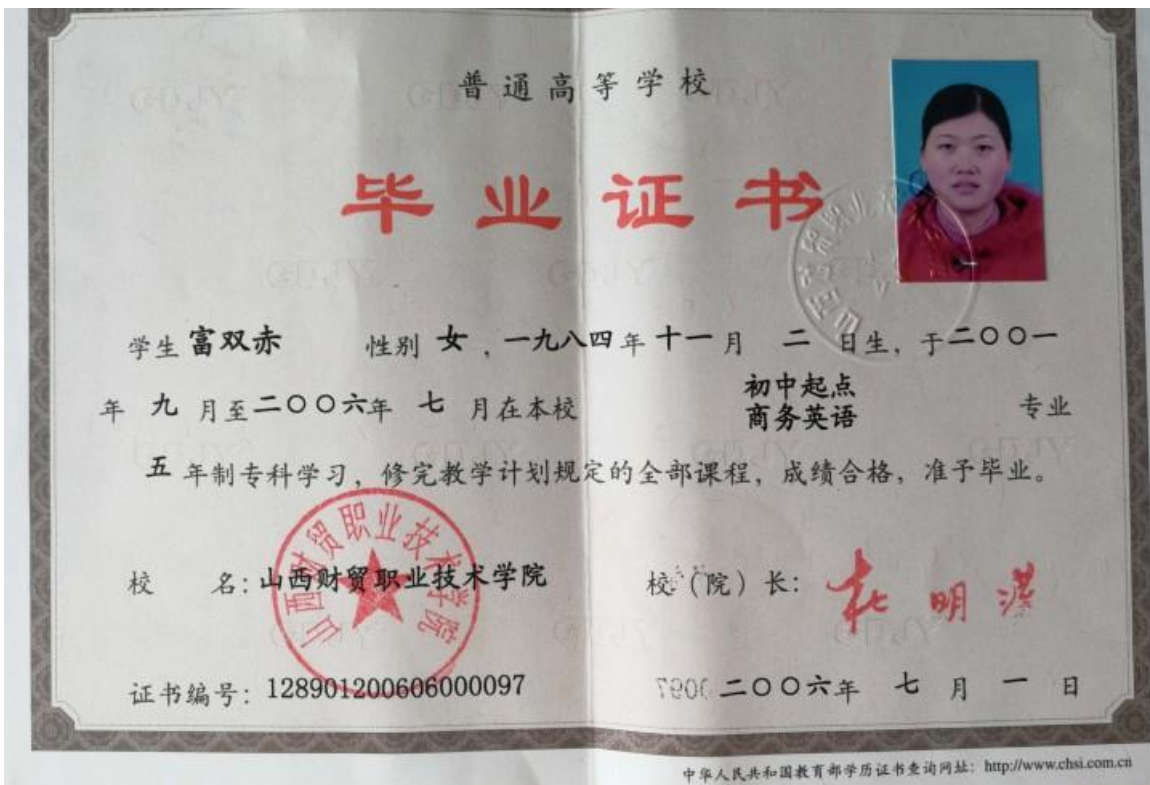 普通高等学校
毕业证书
学生 富双赤 性别 女，一九八四年十一月 二 日生，于二〇〇一
年 九 月至二〇〇六年 七 月在本校 初中起点 商务英语 专业
五 年制专科学习，修完教学计划规定的全部课程，成绩合格，准予毕业。
山西财贸职业技术学院
校 名：山西财贸职业技术学院 校（院）长：
证书编号：128901200606000097 二〇〇六年 七 月 一 日
中华人民共和国教育部学历证书查询网址：http://www.chsi.com.cn